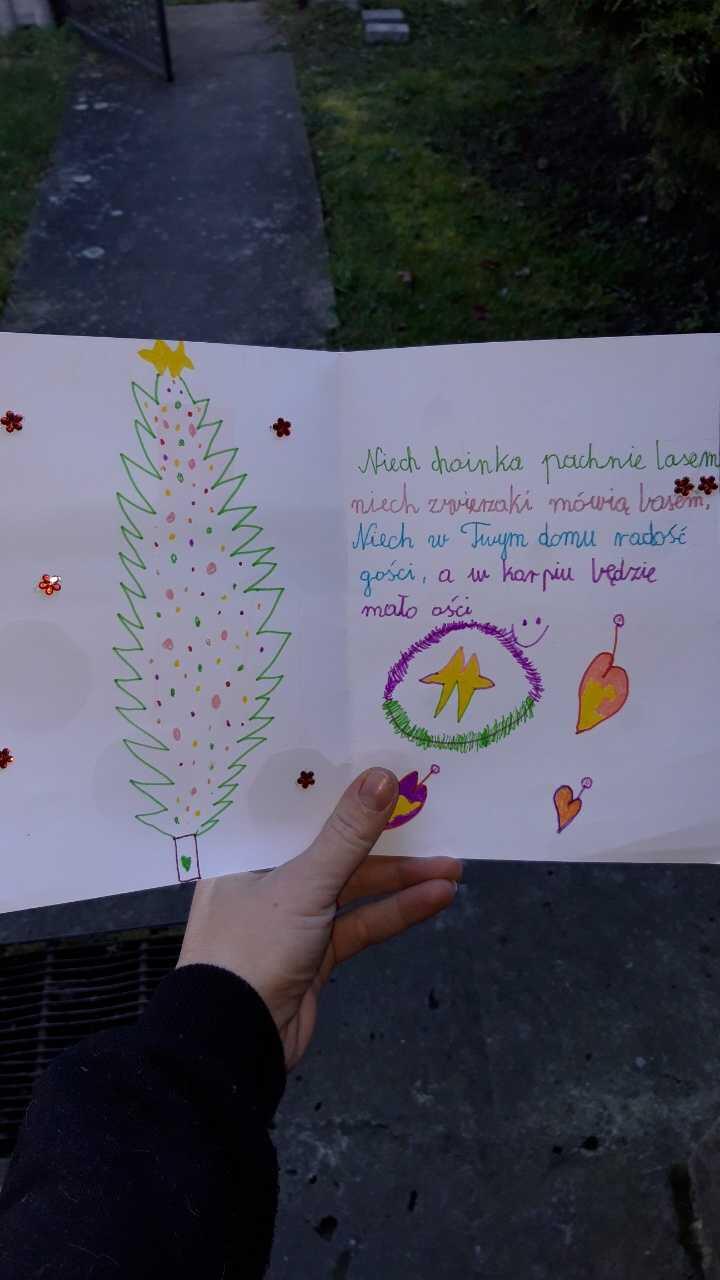 Niech choinka pachnie lasem
niech zwierzaki mówią basem,
Niech w Twym domu radość
gości, a w karpiu będzie
mało ości